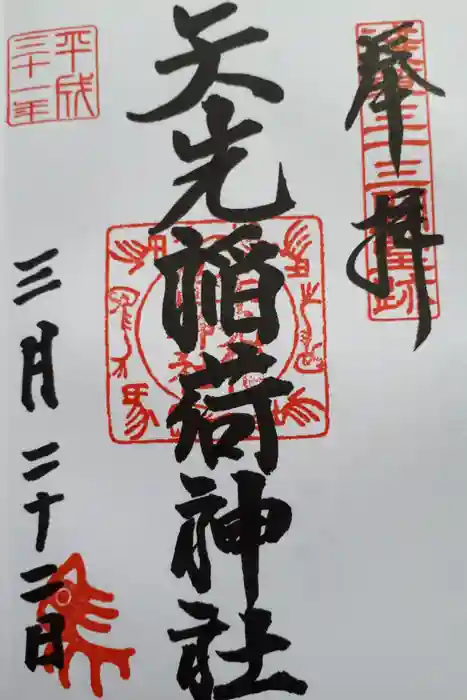 奉拝
矢先稲荷神社
平成
三十一年
三月二十二日